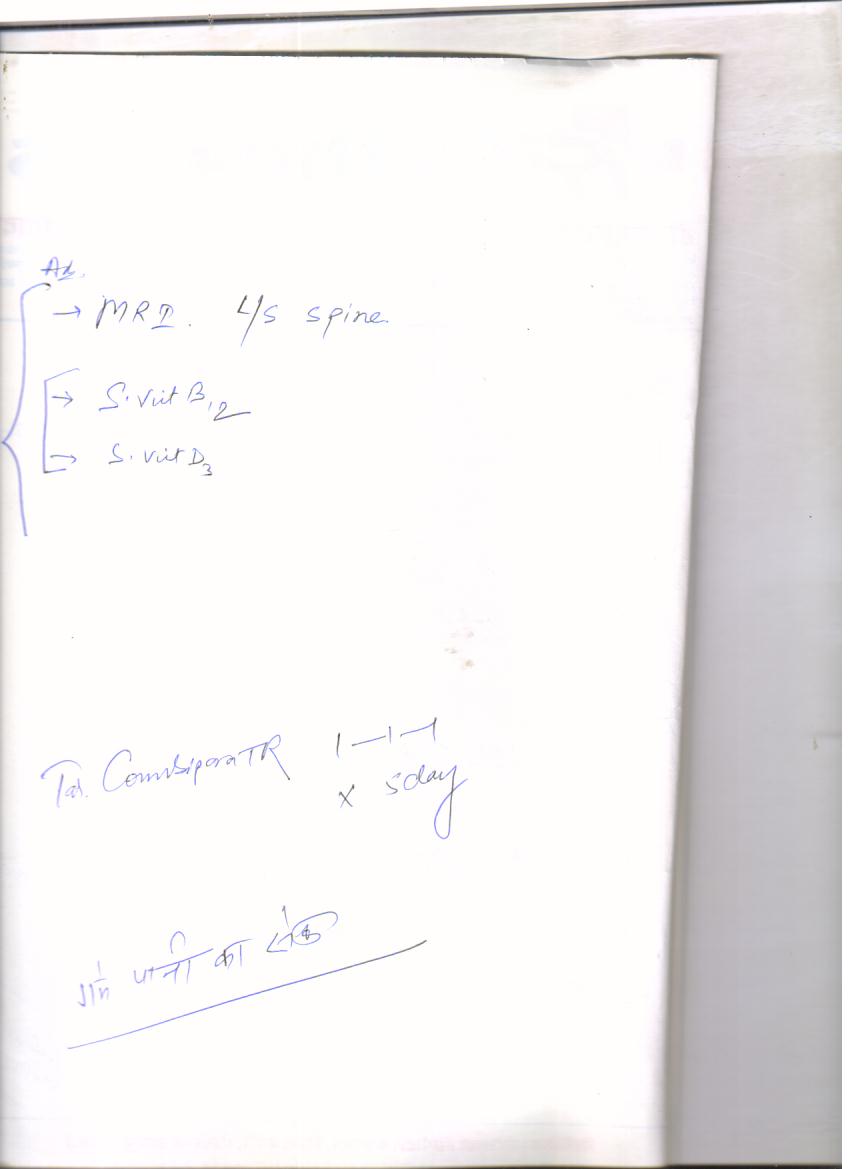 Ad.
→ MRI. L/S spine.
→ S. Vit B12
→ S. Vit D3
Tab. Combipara TR 1-1-1
x 5 day
गर्म पानी का सेंक